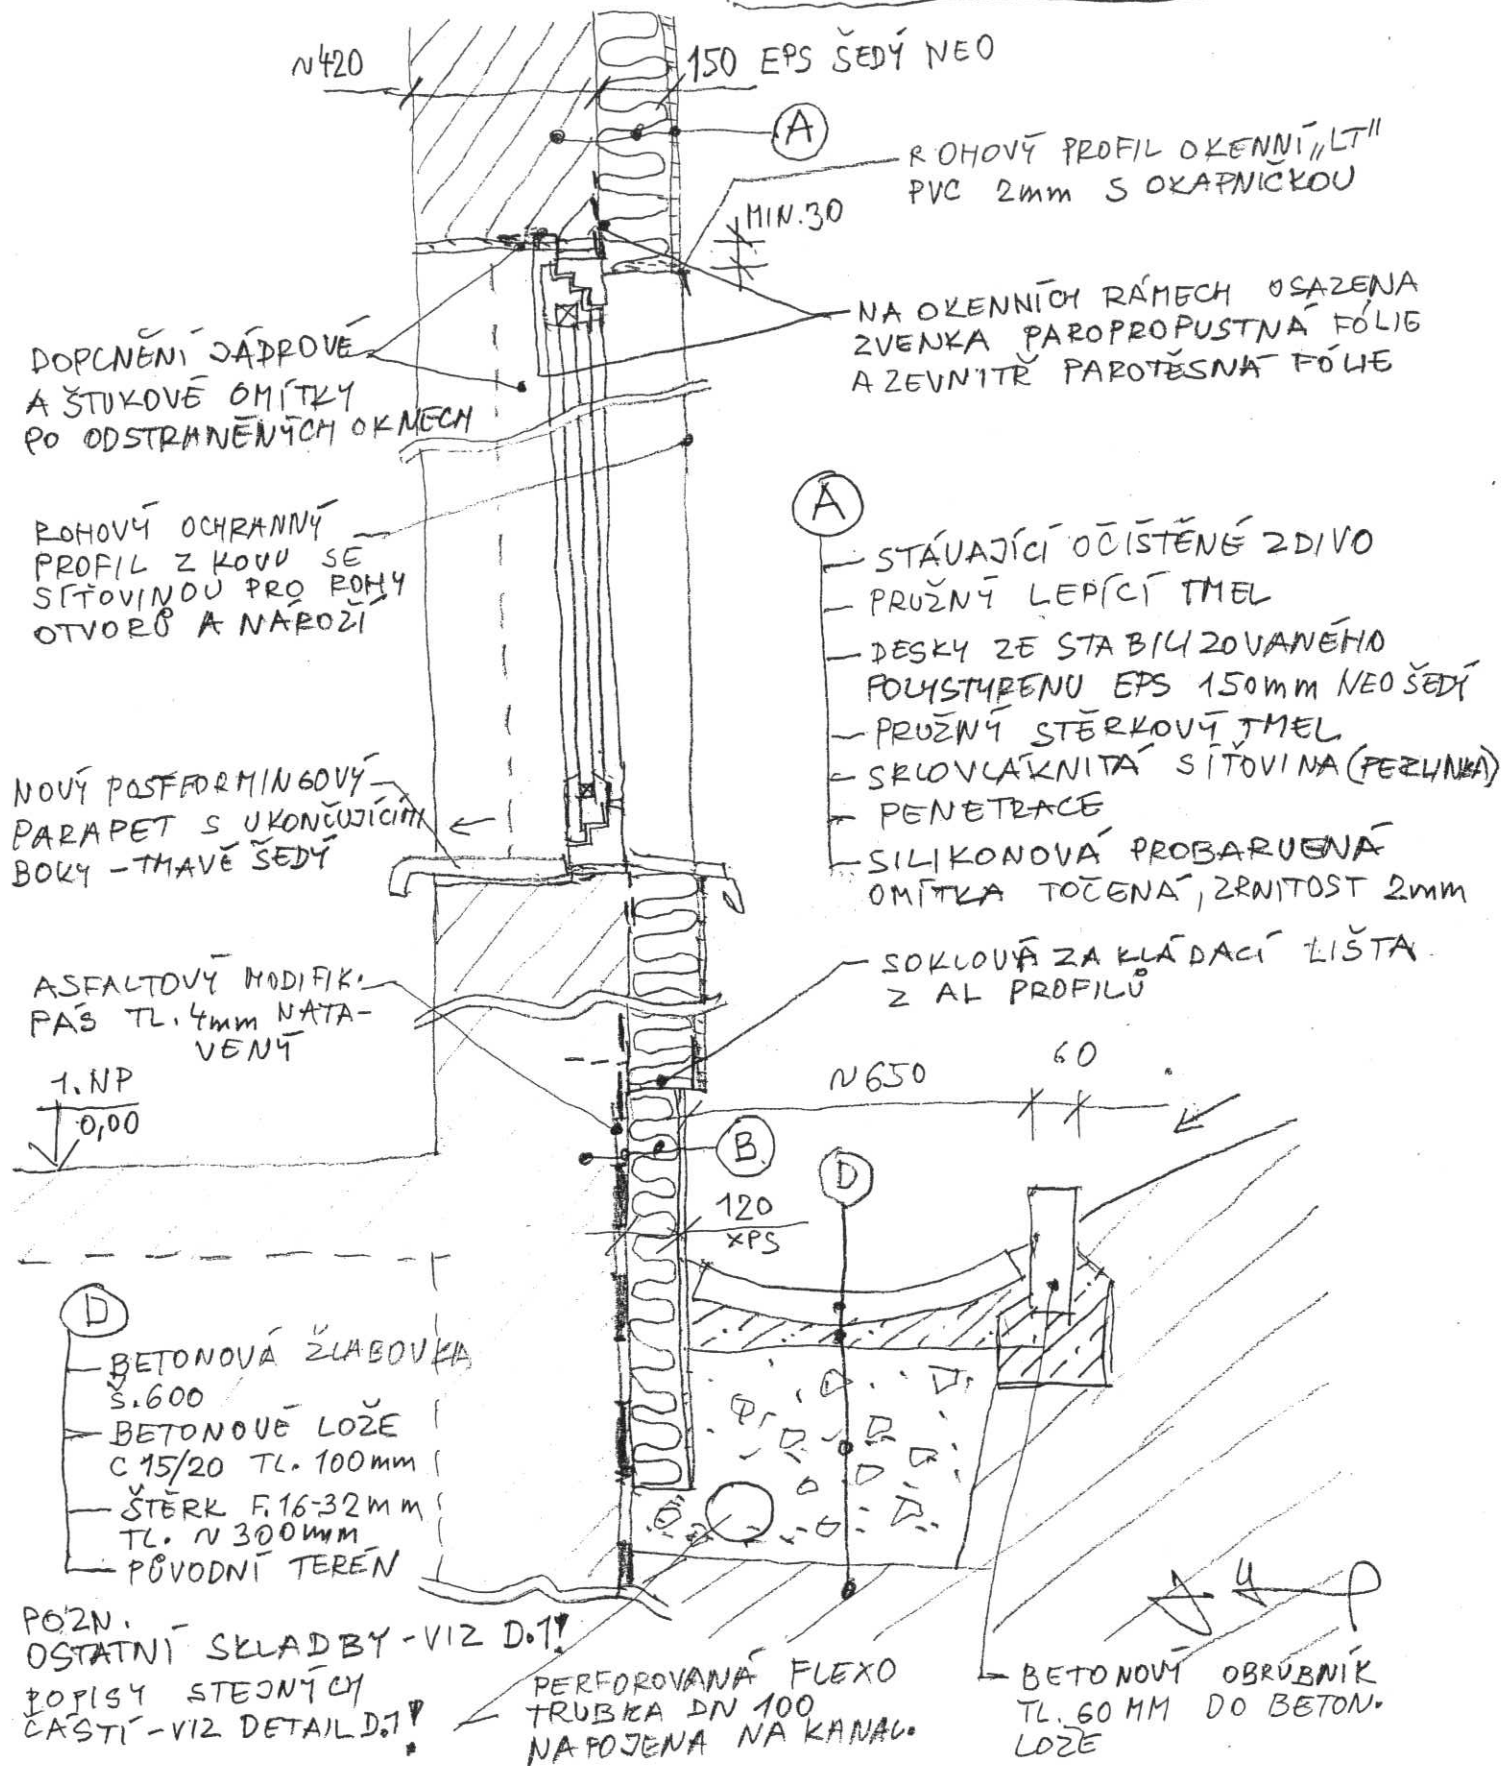 ~420
150 EPS ŠEDÝ NEO
A
ROHOVÝ PROFIL OKENNÍ „LT"
PVC 2mm S OKAPNIČKOU
MIN.30
NA OKENNÍCH RÁMECH OSAZENA
ZVENKA PAROPROPUSTNÁ FÓLIE
A ZEVNITŘ PAROTĚSNÁ FÓLIE
DOPLNĚNÍ JÁDROVÉ
A ŠTUKOVÉ OMÍTKY
PO ODSTRANĚNÝCH OKNECH
ROHOVÝ OCHRANNÝ
PROFIL Z KOVU SE
SÍŤOVINOU PRO ROHY
OTVORŮ A NÁROŽÍ
A
STÁVAJÍCÍ OČIŠTĚNÉ ZDIVO
PRUŽNÝ LEPÍCÍ TMEL
DESKY ZE STABILIZOVANÉHO
POLYSTYRENU EPS 150mm NEO ŠEDÝ
PRUŽNÝ STĚRKOVÝ TMEL
SKLOVLÁKNITÁ SÍŤOVINA (PERLINKA)
PENETRACE
SILIKONOVÁ PROBARVENÁ
OMÍTKA TOČENÁ, ZRNITOST 2mm
NOVÝ POSTFORMINGOVÝ
PARAPET S UKONČUJÍCÍMI
BOKY - TMAVĚ ŠEDÝ
ASFALTOVÝ MODIFIK.
PÁS TL. 4mm NATA-
VENÝ
SOKLOVÁ ZAKLÁDACÍ LIŠTA
Z AL PROFILŮ
1. NP
0,00
~650
60
B
D
120
XPS
D
BETONOVÁ ŽLABOVKA
Š.600
BETONOVÉ LOŽE
C 15/20 TL. 100mm
ŠTĚRK F. 16-32mm
TL. ~ 300mm
PŮVODNÍ TERÉN
POZN.
OSTATNÍ SKLADBY - VIZ D.1!
POPISY STEJNÝCH
ČÁSTÍ - VIZ DETAIL D.1!
PERFOROVANÁ FLEXO
TRUBKA DN 100
NAPOJENA NA KANAL.
BETONOVÝ OBRUBNÍK
TL. 60 MM DO BETON.
LOŽE